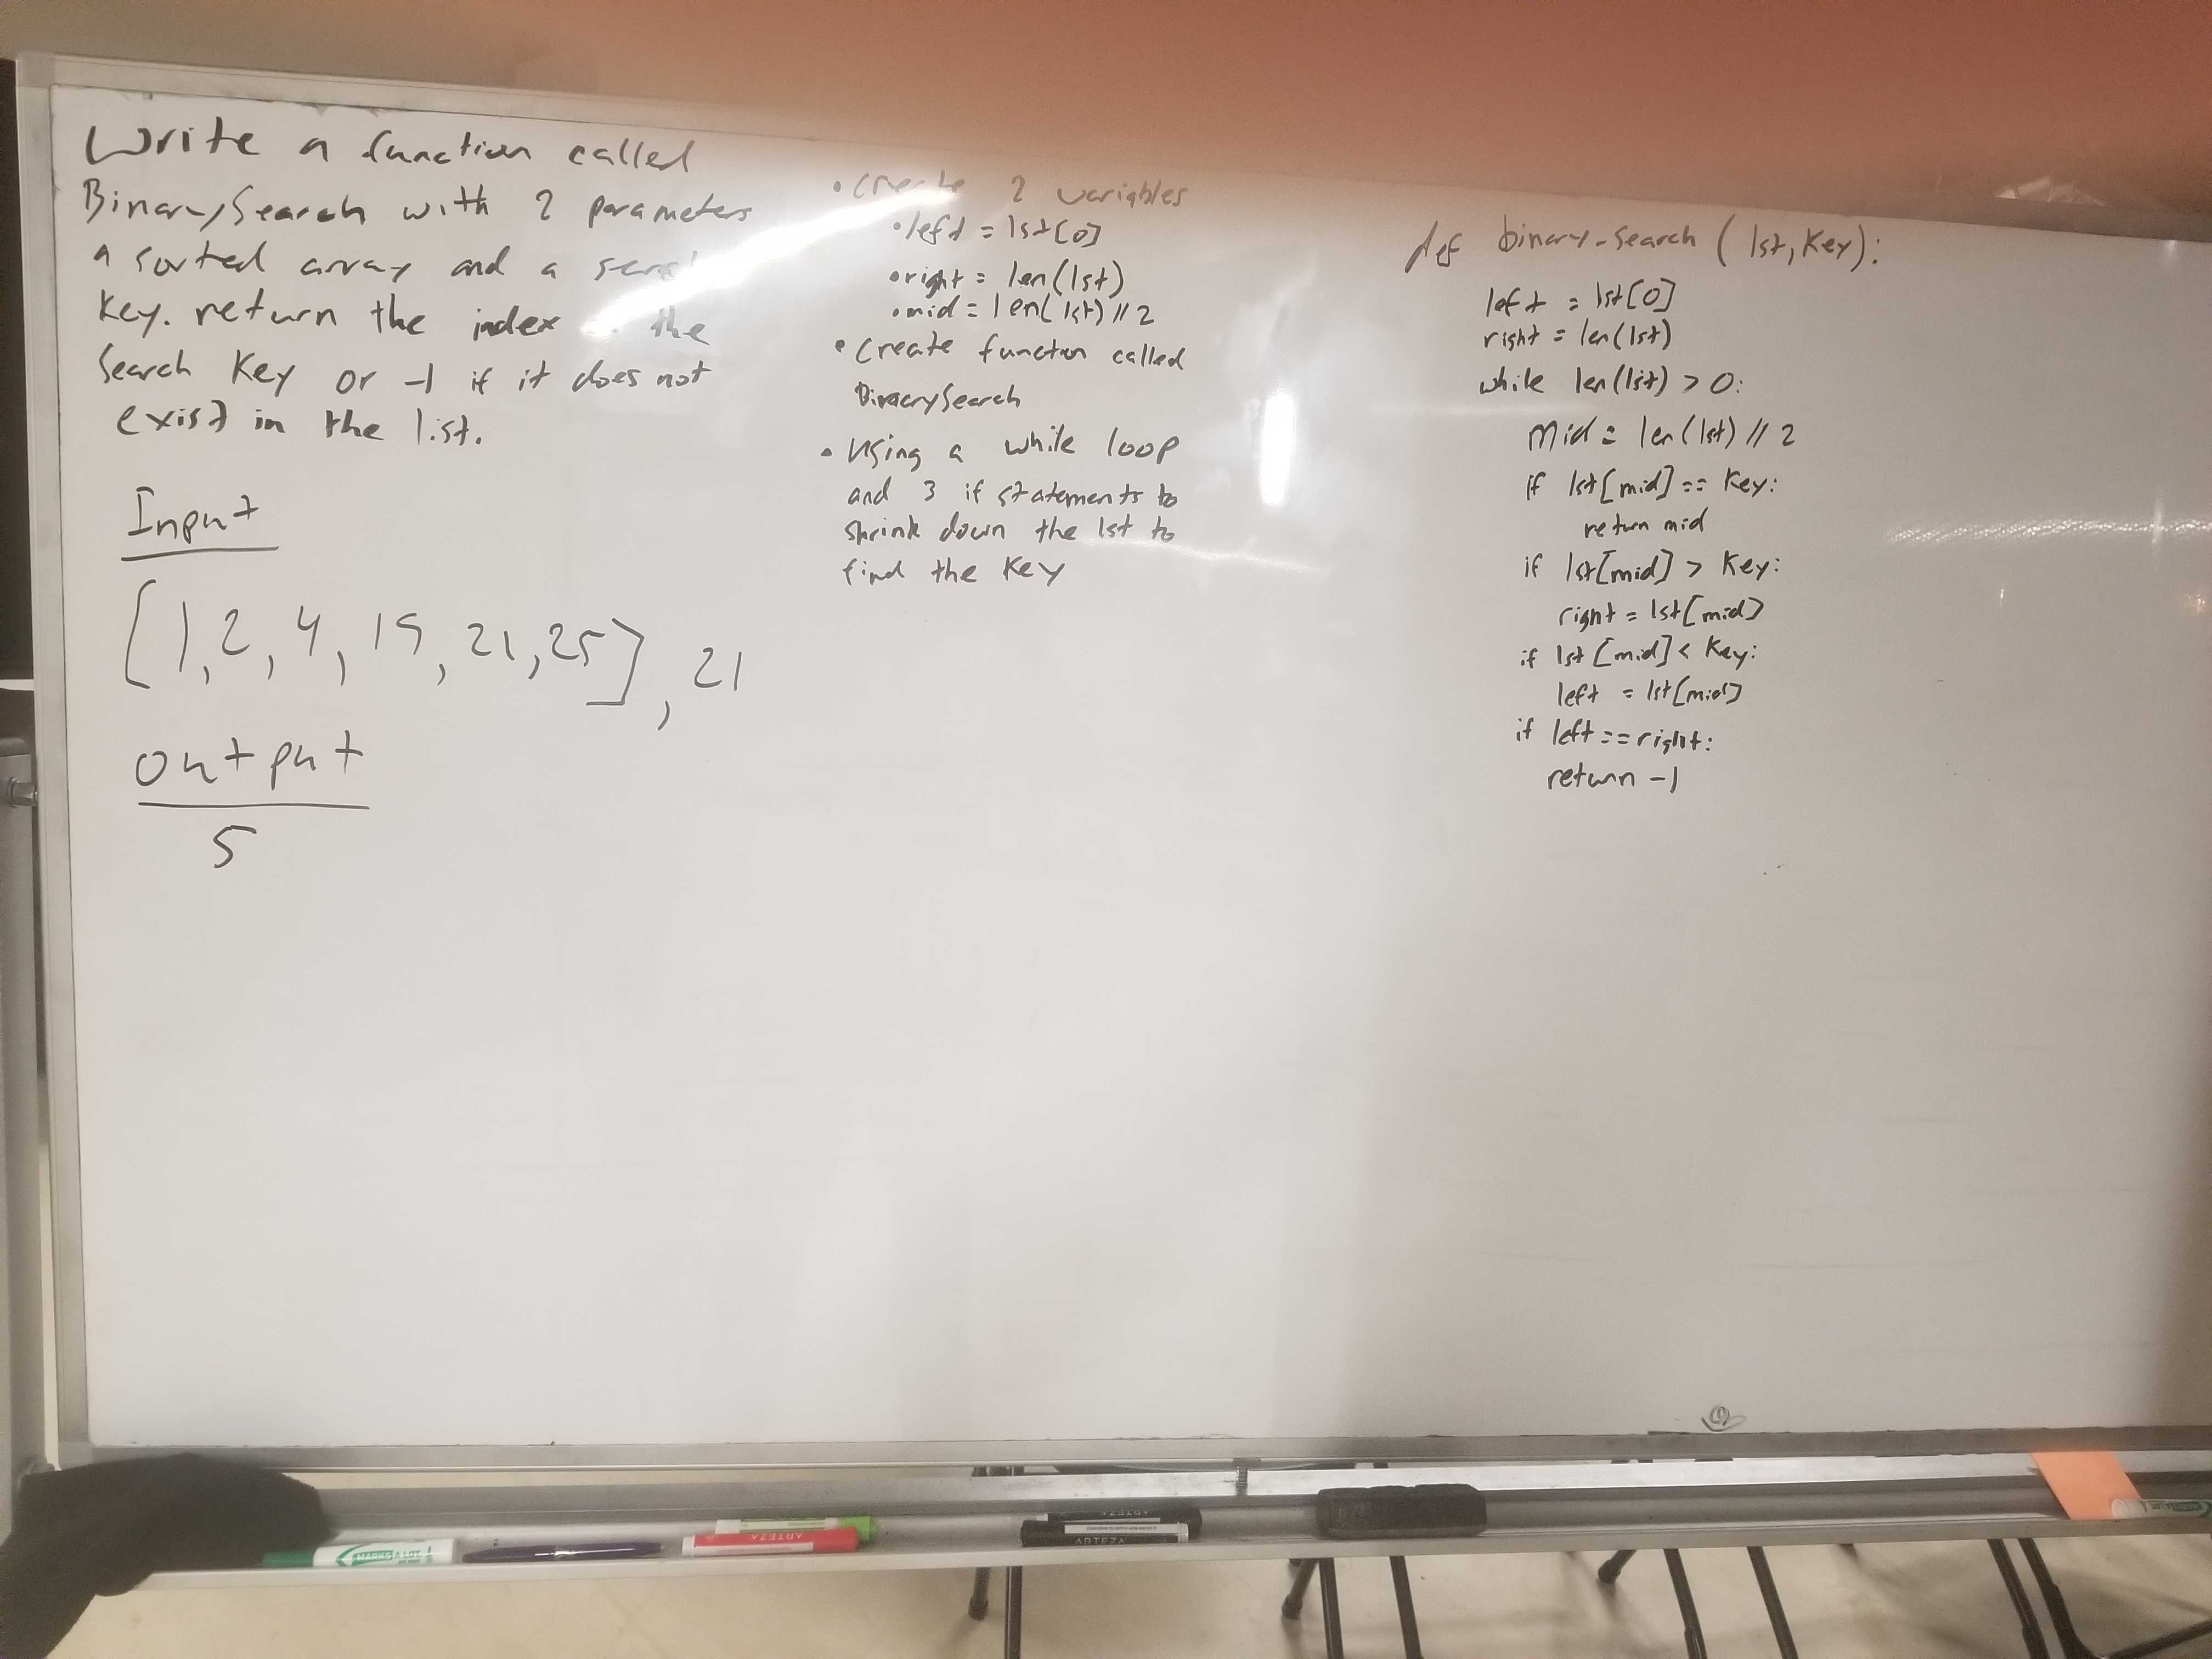 Write a function called
BinarySearch with 2 parameters
a sorted array and a
key. return the index the
Search Key or -1 if it does not
exist in the list.
Input
[1, 2, 4, 15, 21, 25], 21
output
5
• Create 2 variables
• left = lst[0]
• right = len(lst)
• mid = len(lst) // 2
• Create function called
BinarySearch
• Using a while loop
and 3 if statements to
shrink down the lst to
find the key
def binary-search (lst, key):
left = lst[0]
right = len(lst)
while len(list) > 0:
Mid = len(lst) // 2
if lst[mid] == key:
return mid
if lst[mid] > key:
right = lst[mid]
if lst[mid] < key:
left = lst[mid]
if left == right:
return -1
MARKS A LOT
ARTEZA
ARTEZA